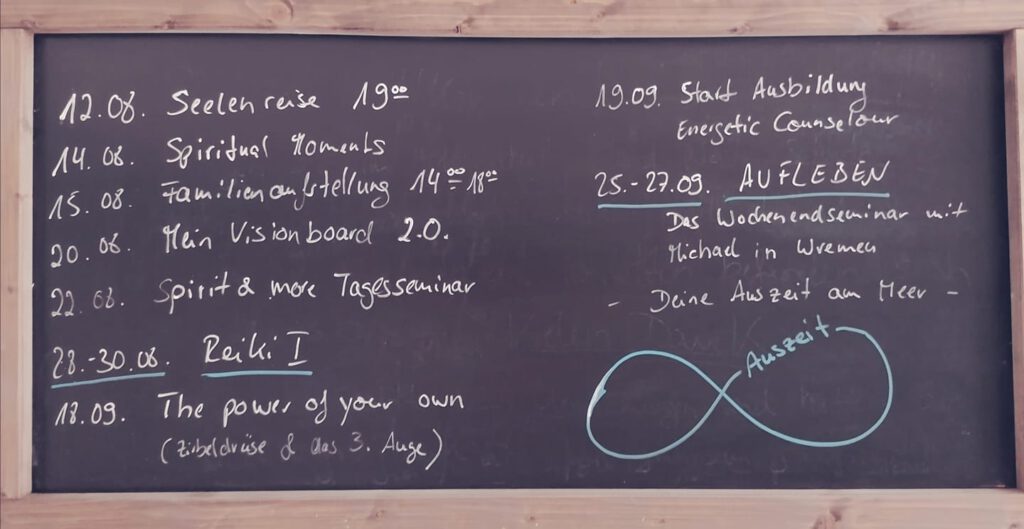 12.08. Seelenreise 19⁰⁰
14.08. Spiritual Moments
15.08. Familienaufstellung 14⁰⁰-18⁰⁰
20.08. Mein Visionboard 2.0.
22.08. Spirit & more Tagesseminar
28.-30.08. Reiki I
18.09. The power of your own
(Zirbeldrüse & das 3. Auge)
19.09. Start Ausbildung
Energetic Counselour
25.-27.09. AUFLEBEN
Das Wochenendseminar mit
Michael in Wremen
- Deine Auszeit am Meer -
Auszeit